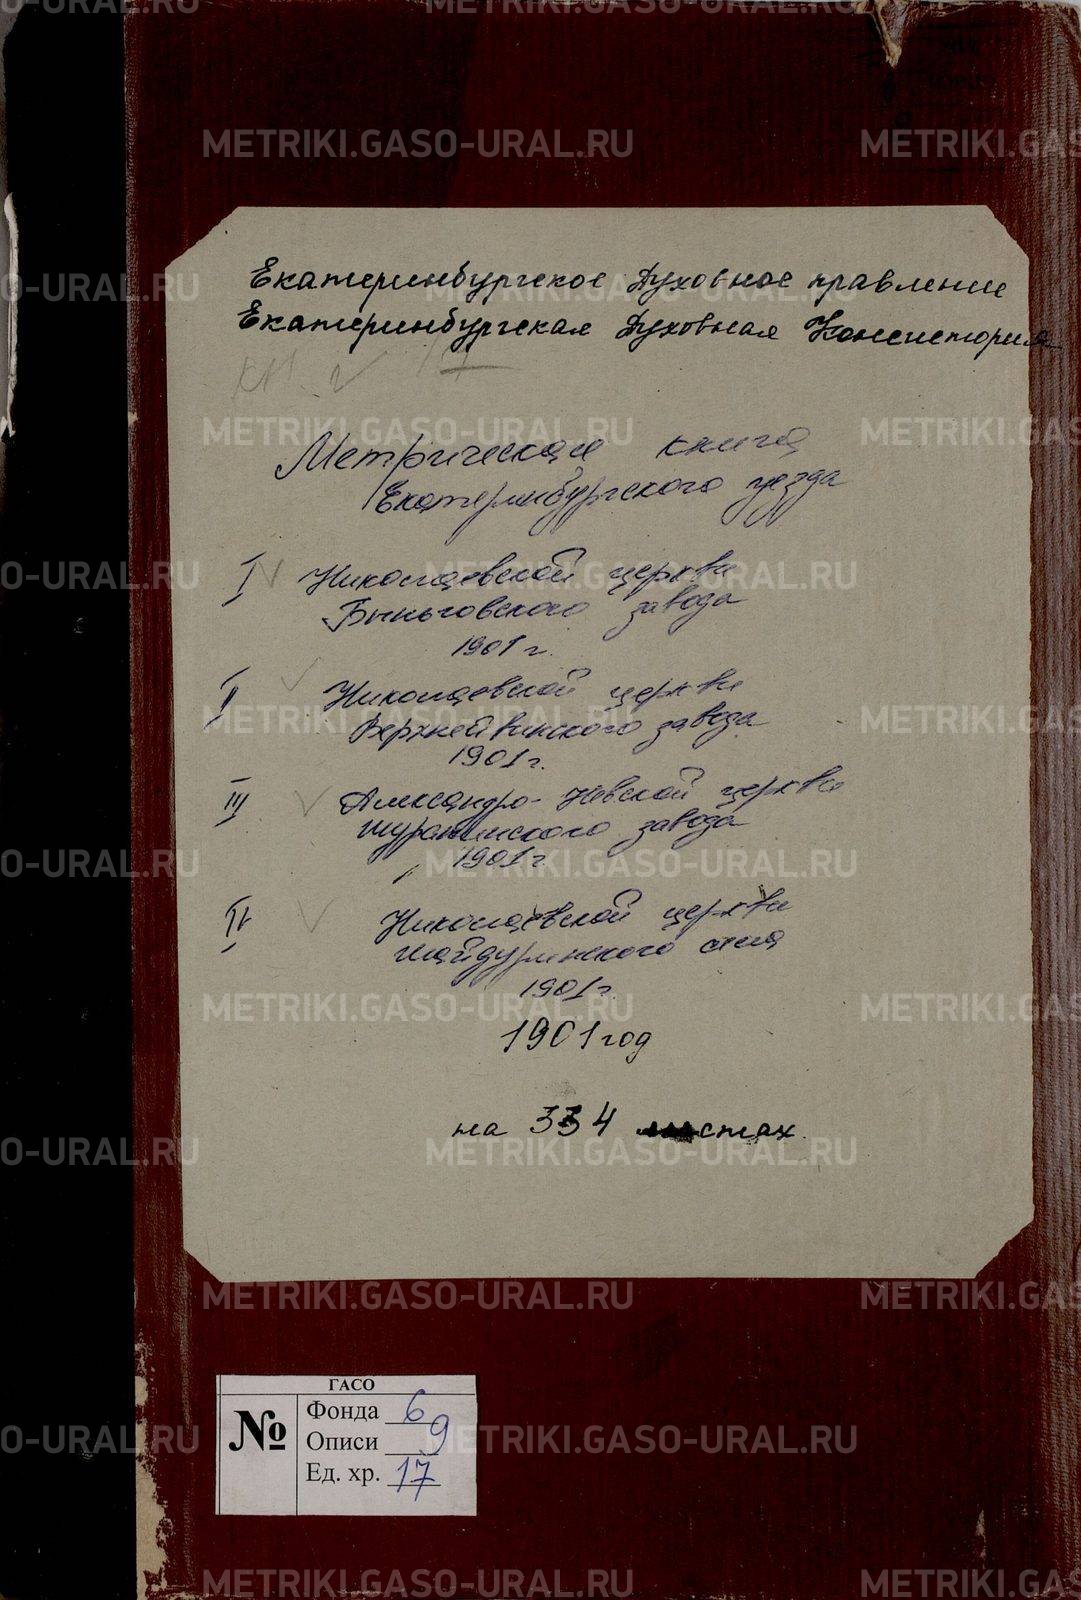 Екатеринбургское Духовное правление
Екатеринбургская Духовная Консистория
Метрическая книга
Екатеринбургского уезда
I Николаевской церкви
Быньговского завода
1901 г.
II Николаевской церкви
Верхнейвинского завода
1901 г.
III Александро-Невской церкви
Шуралинского завода
1901 г.
IV Николаевской церкви
Шайдурихского села
1901 г.
1901 год
на 334 листах.
ГАСО
№
Фонда 6
Описи 9
Ед. хр. 17
METRIKI.GASO-URAL.RU